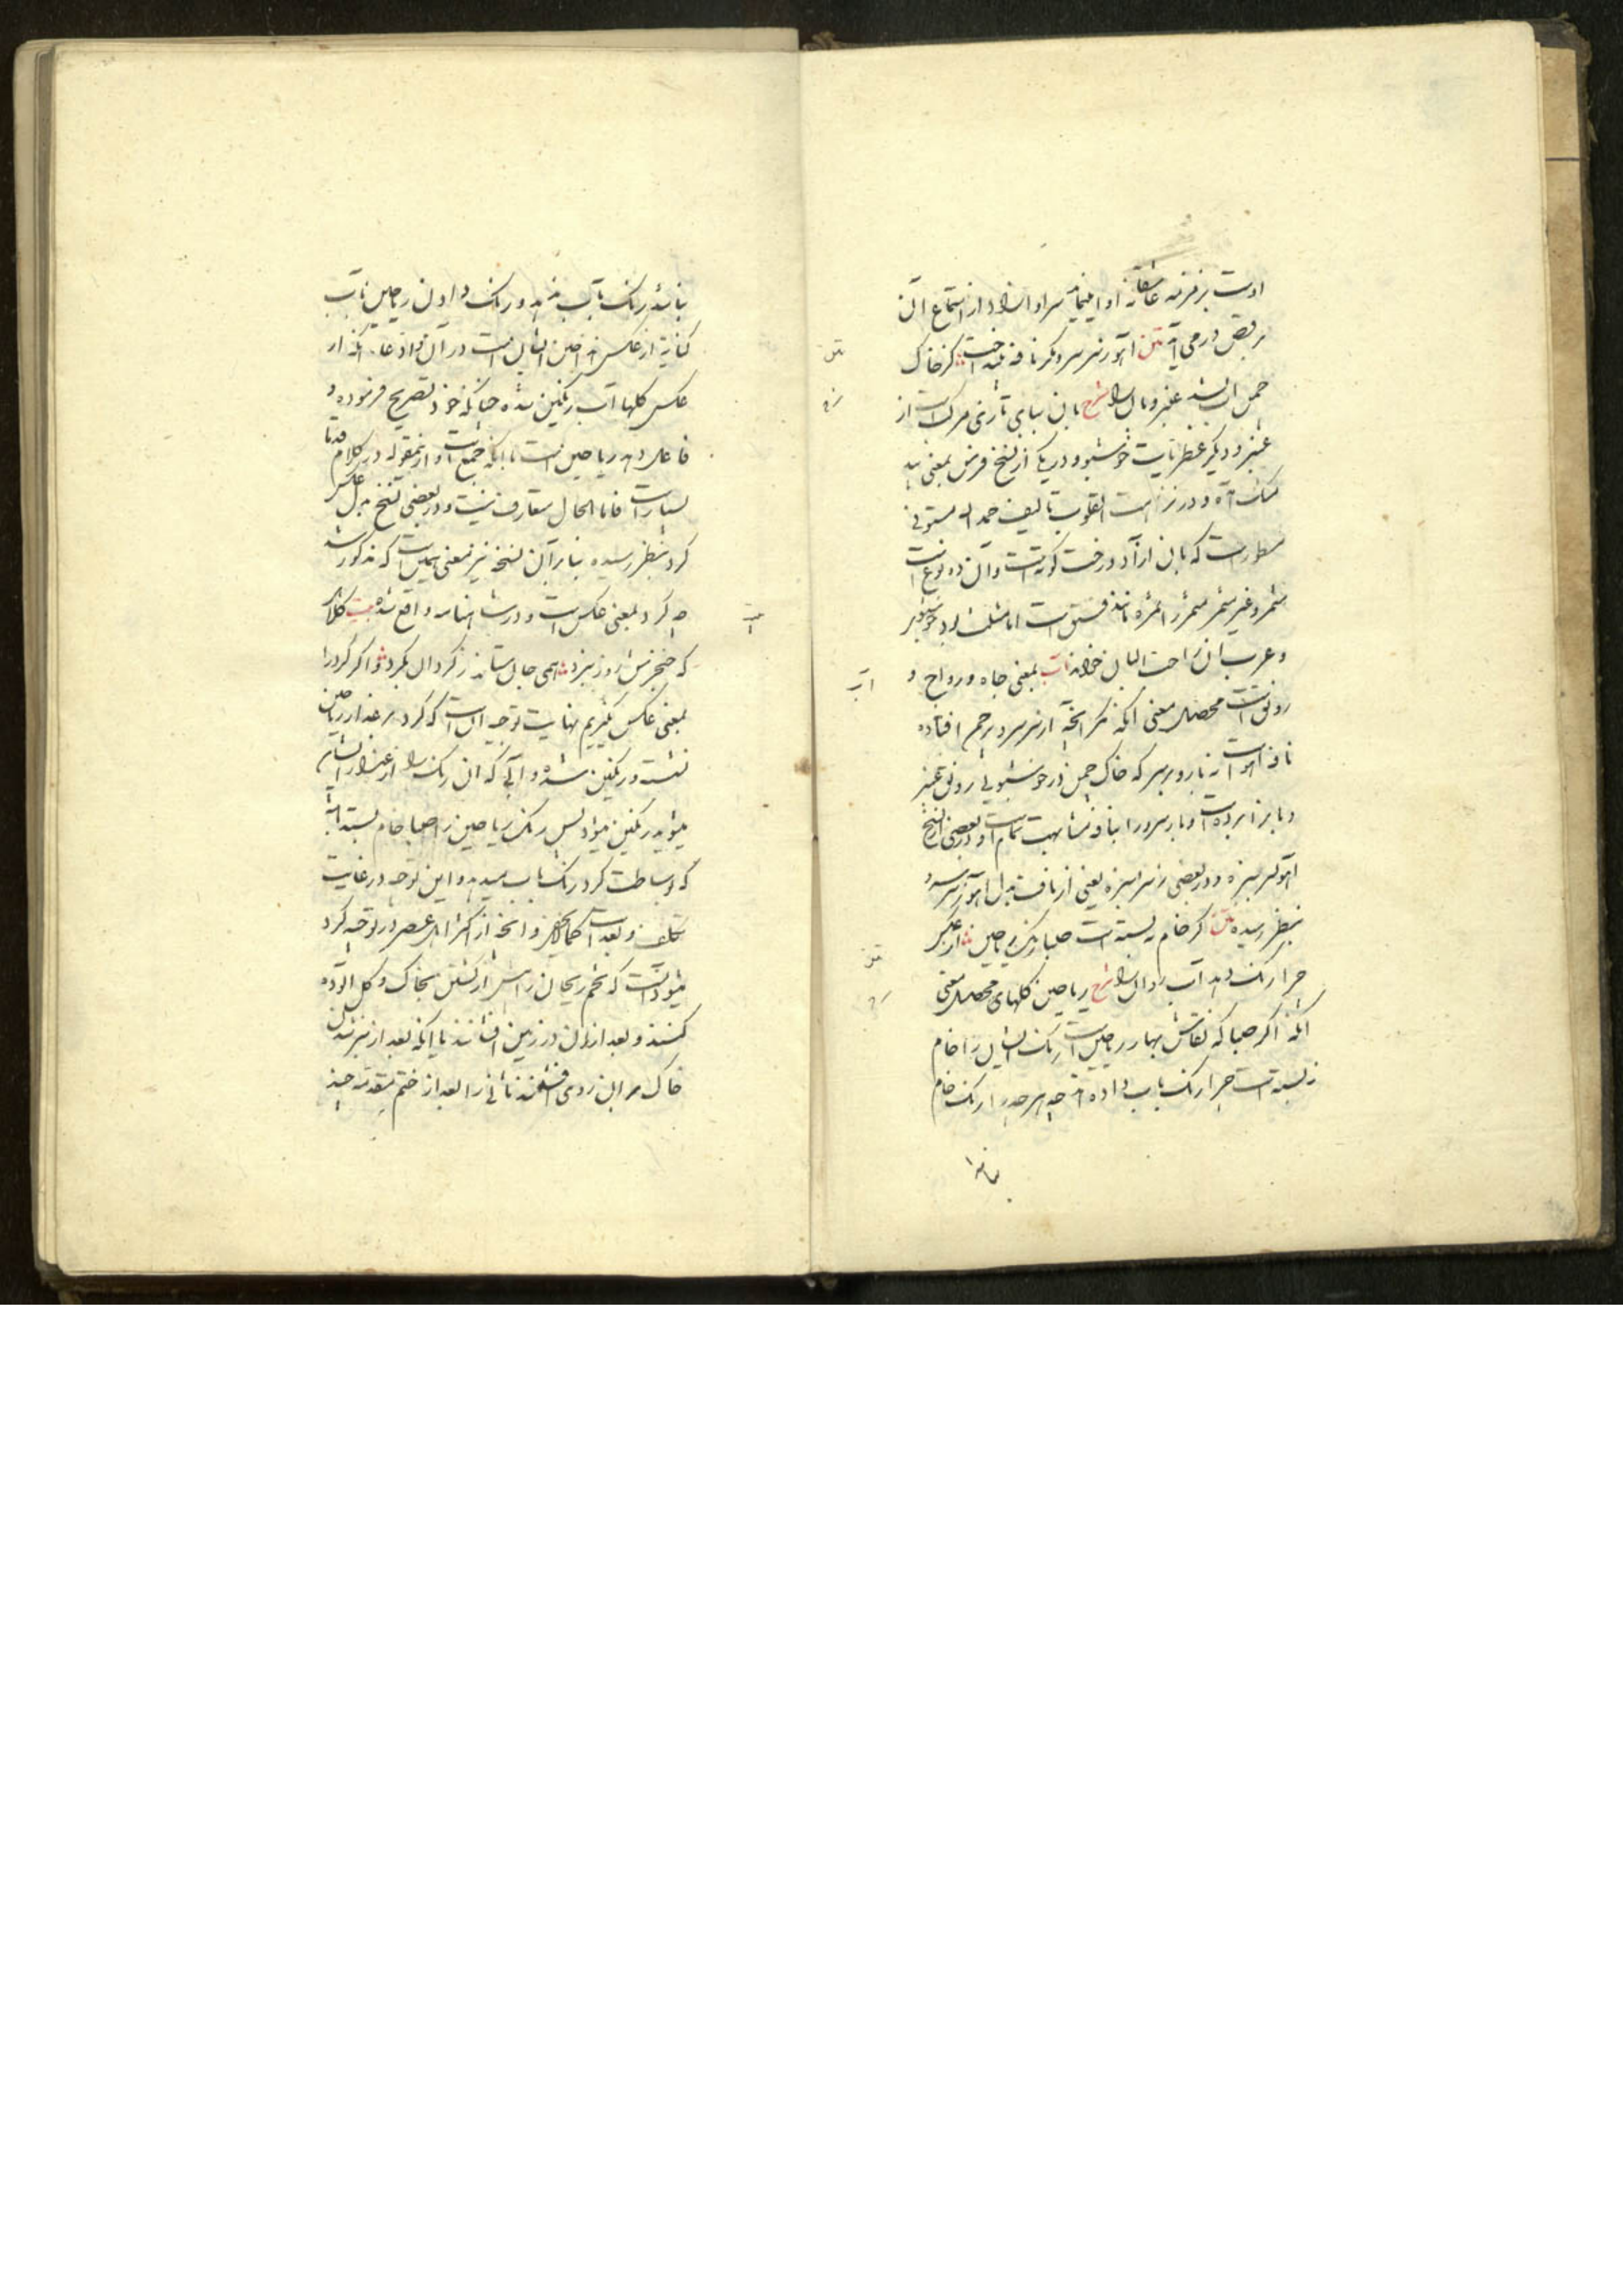 اوست بزمزمه عاشقانه او ایمائیه سراو انراد از استماع آن
برقص در می آید متن آهو ز سر سرو مگر نافه بینداخت کز خاک
چمن آب بشد عنبر و بان را شرح بان ببای تازی مرکب است از
عنبر و دیگر عطریات خوشبو و در یکی از نسخ فرس بمعنی بید
مشک آمده و در نزهت القلوب تالیف حمد الله مستوفی
مسطور است که بان از آزاد درخت کوته است و آن دو نوع است
مثمر و غیر مثمر مثمر را ثمره مانند فستق است اما مثلث بود خوشبو
و عرب آن را حب البان خوانند آب بمعنی جاه و رواج و
رونق است محصل معنی آنکه مگر آنچه از سر سرو بر چمن افتاده
نافه آهو است نه بار و بر سر که خاک چمن در خوشبویی رونق عنبر
و بانرا برده است و بار سرو را بنافه مشابهت تمام است و در بعضی نسخ
آهو سر سبزه و در بعضی ز سر سبزه یعنی از ناف بدل آهو ز سر سرو
بنظر رسیده متن گر خام نبسته است صبا رنگ ریاحین از عکس
چرا رنگ دهد آب روان را شرح ریاحین گلهای محصل معنی
آنکه اگر صبا که نقاش بهار ریاحین است رنگ ایشان را خام
نه بسته است چرا رنگ بآب داده چه هر چه را رنگ خام
متن
شرح
آب
متن
شرح
باشد
باشد رنگ بآب میدهد و رنگ دادن ریاحین بآب
کنایة از عکس ریاحین ایشان است در آب و ادعاء آنکه از
عکس گلها آب رنگین شده چنانکه خود تصریح فرموده و
فاعل دهد ریاحین است با آنکه جمع است و ازینمقوله در کلام قدما
بسیار است فاما الحال متعارف نیست و در بعضی نسخ بدل عکس
گرد بنظر رسیده بنابر آن نسخه نیز معنی همین است که مذکور شد
چه گرد بمعنی عکس است و در شاهنامه واقع شده بیت
که خنجرش روز نبرد همی جان ستاند ز گردان بگرد و اگر گرد را
بمعنی عکس نگیریم نهایت توجیه آن است که گرد بر عذار ریاحین
نشسته و رنگین شده و آبی که آن رنگ را از عذار ایشان
میشوید رنگین میشود پس رنگ ریاحین را صبا خام بسته است
که بوساطت گرد رنگ بآب میدهد و این توجیه در غایت
تکلف و بعد است کمالایخفی و آنچه از اکثر اهل عصر در توجیه گرد
میشود آنست که تخم ریحان را پیش از کشتن بخاک و گل آلوده
کنند و بعد از آن در زمین افشانند یا آنکه بعد از سبز شدن
خاک بر آن زدی افشانند ثانی را بعد از ختم مقدمه چند
بیت